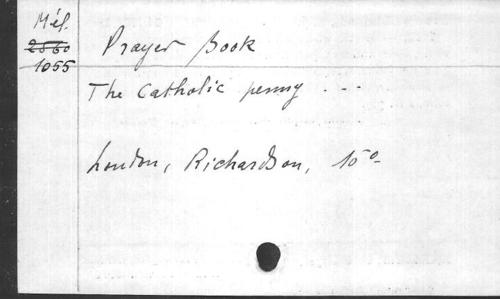 Mél.
2560
1055
Prayer Book
The Catholic penny ...
London, Richardson,